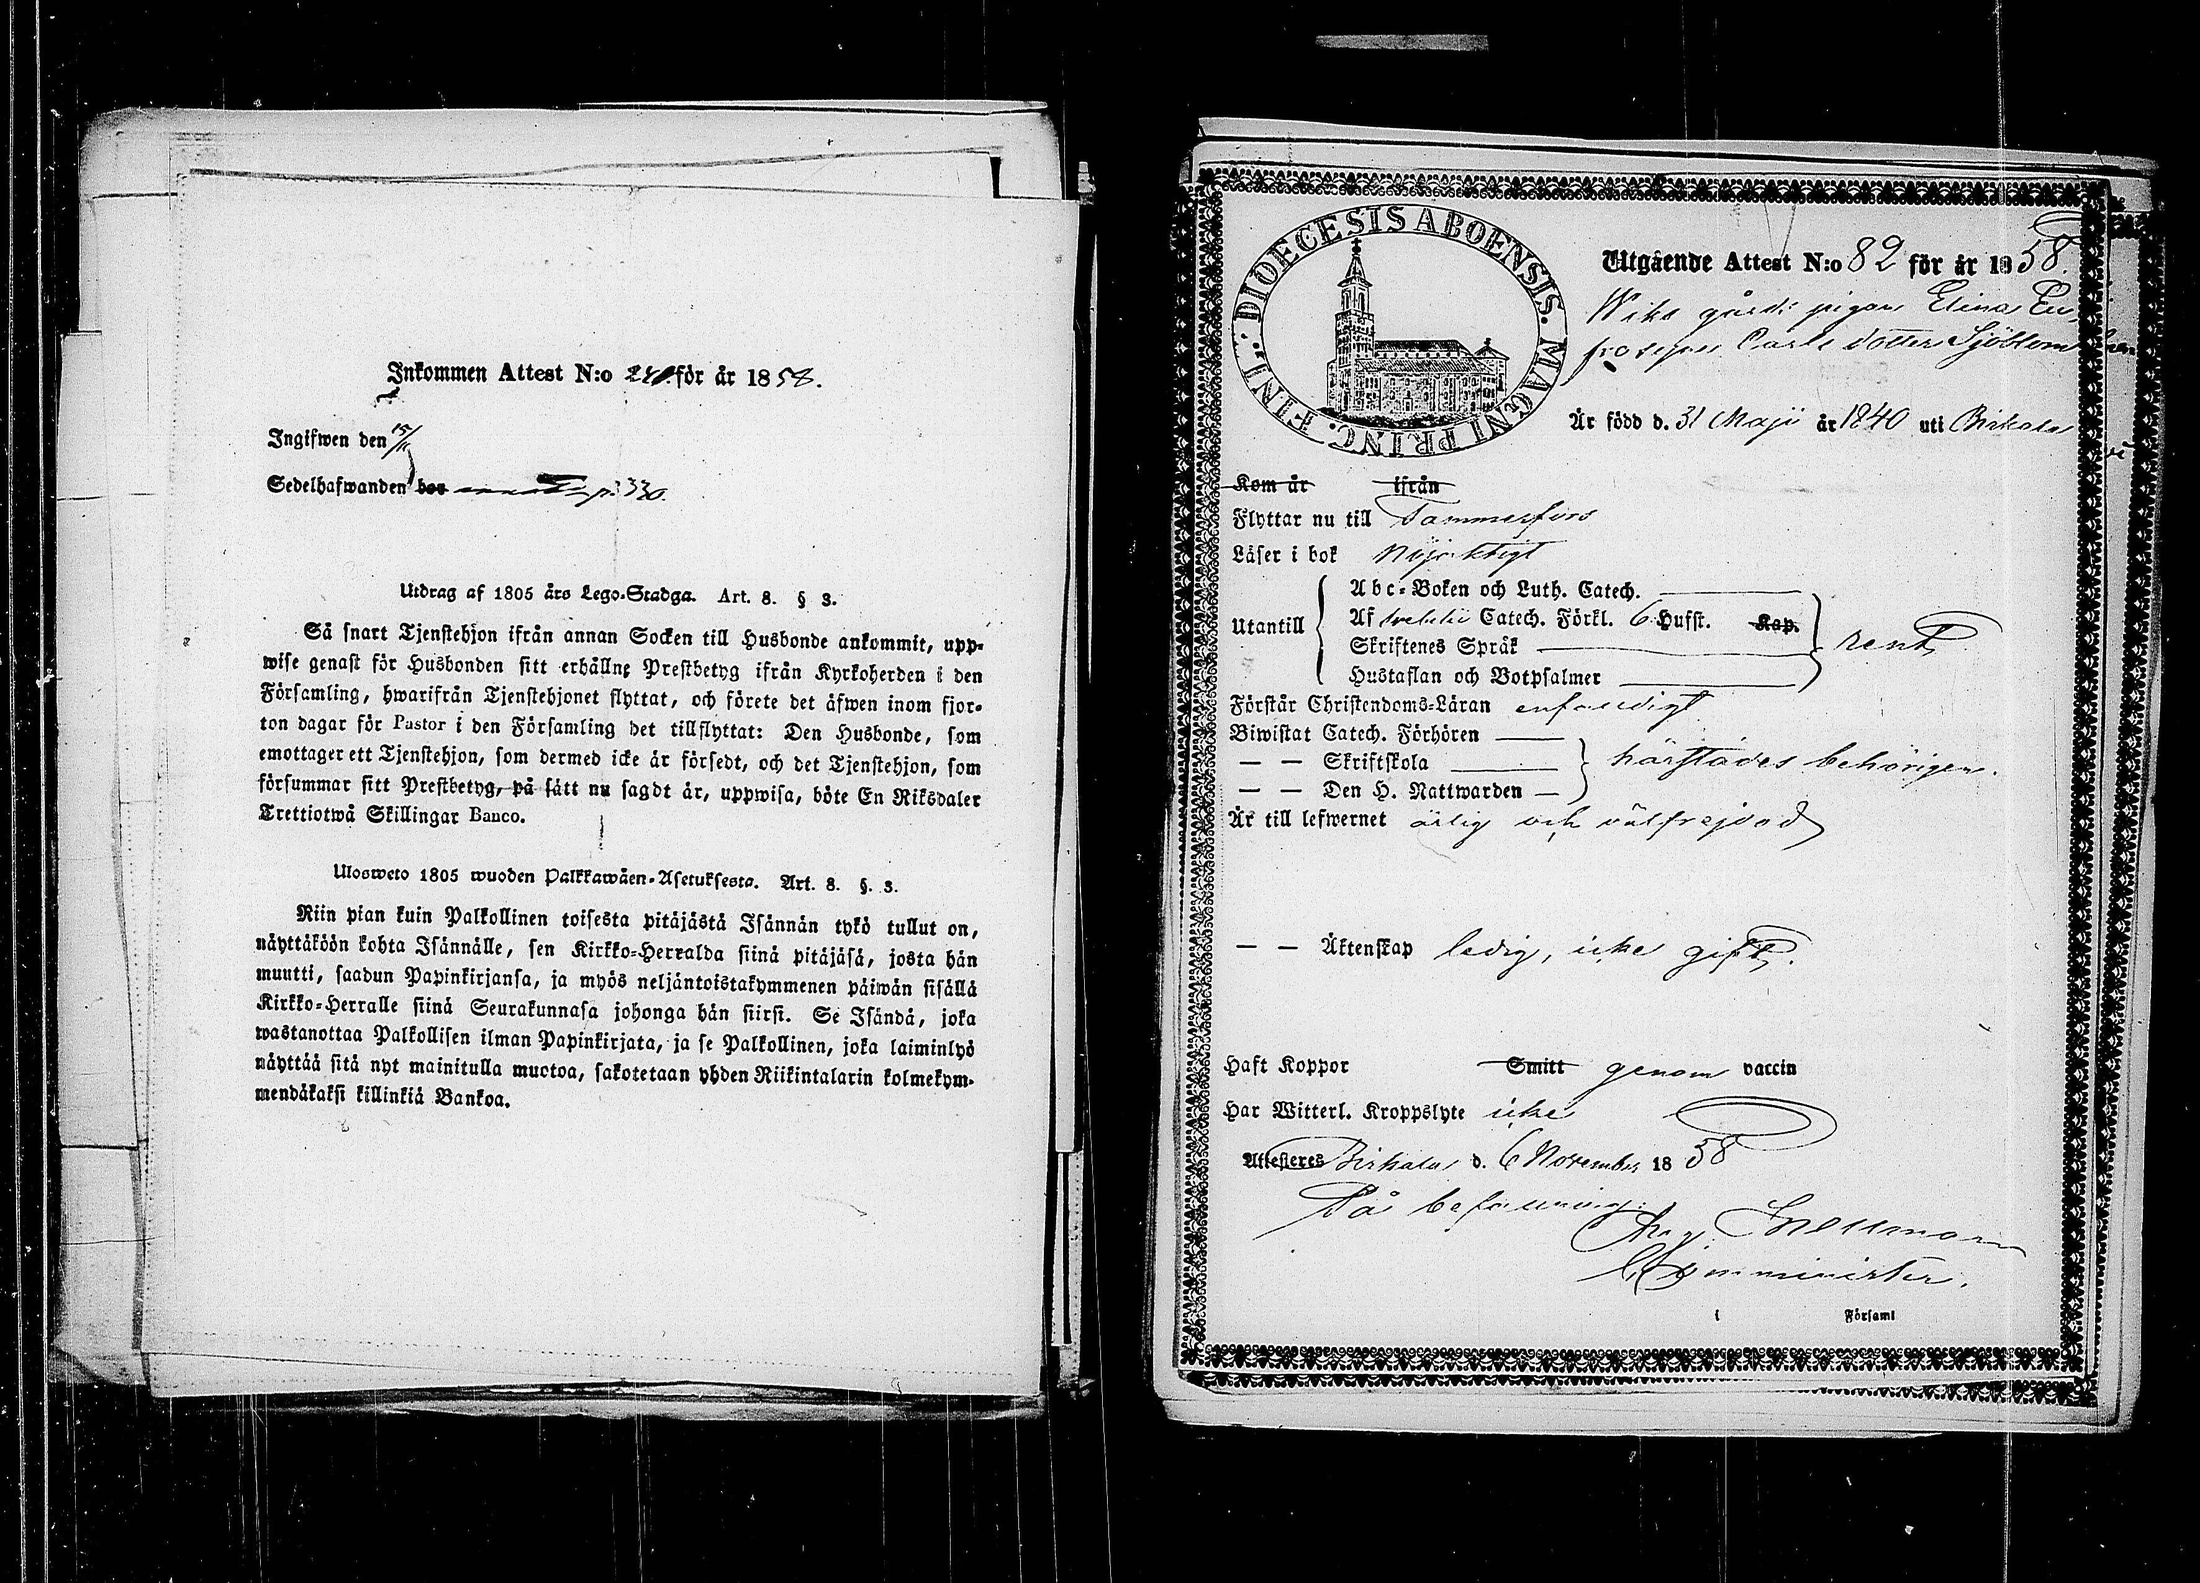 Inkommen Attest N:o för år 1858.
Ingifwen den 15/11
Sedelhafwanden bor p. 330.
Utdrag af 1805 års Lego-Stadga. Art. 8. § 3.
Så snart Tjenstehjon ifrån annan Socken till Husbonde ankommit, upp-
wise genast för Husbonden sitt erhållne Prestbetyg ifrån Kyrkoherden i den
Församling, hwarifrån Tjenstehjonet flyttat, och förete det äfwen inom fjor-
ton dagar för Pastor i den Församling det tillflyttat: Den Husbonde, som
emottager ett Tjenstehjon, som dermed icke är försedt, och det Tjenstehjon, som
försummar sitt Prestbetyg, på sätt nu sagdt är, uppwisa, böte En Riksdaler
Trettiotwå Skillingar Banco.
Ulosweto 1805 wuoden Palkkawäen-Asetuksesta. Art. 8. §. 3.
Niin pian kuin Palkollinen toisesta pitäjästä Isännän tykö tullut on,
näyttäköön kohta Isännälle, sen Kirkko-Herralda siinä pitäjäsä, josta hän
muutti, saadun Papinkirjansa, ja myös neljäntoistakymmenen päiwän sisällä
Kirkko-Herralle siinä Seurakunnasa johonga hän siirsi. Se Isändä, joka
wastanottaa Palkollisen ilman Papinkirjata, ja se Palkollinen, joka laiminlyö
näyttää sitä nyt mainitulla muotoa, sakotetaan yhden Riikintalarin kolmekym-
mendäkaksi killinkiä Bankoa.
DIOECESIS ABOENSIS. MAGNI PRINC. FINL:
Utgående Attest N:o 82 för år 1858.
Wiks gårds pigan Elina Eu-
frosyne Carls dotter Sjöblom
Är född d. 31 Maji år 1840 uti Birkala
Kom år ifrån
Flyttar nu till Tammerfors
Läser i bok nöjaktigt
Utantill
Abc-Boken och Luth. Catech.
Af Catech. Förkl. 6 Hufst. Kap.
Skriftenes Språk
Hustaflan och Botpsalmer
rent
Förstår Christendoms-Läran enfaldigt
Biwistat Catech. Förhören
— — Skriftskola
— — Den H. Nattwarden
härstädes behörigen.
Är till lefwernet ärlig och välfrejdad
— — Äktenskap ledig, icke gift.
Haft Koppor Smitt genom vaccin
Har Witterl. Kroppslyte icke
Attesteres Birkala d. 6 November 1858
På befallning
Snellman
Comminister.
i Församl